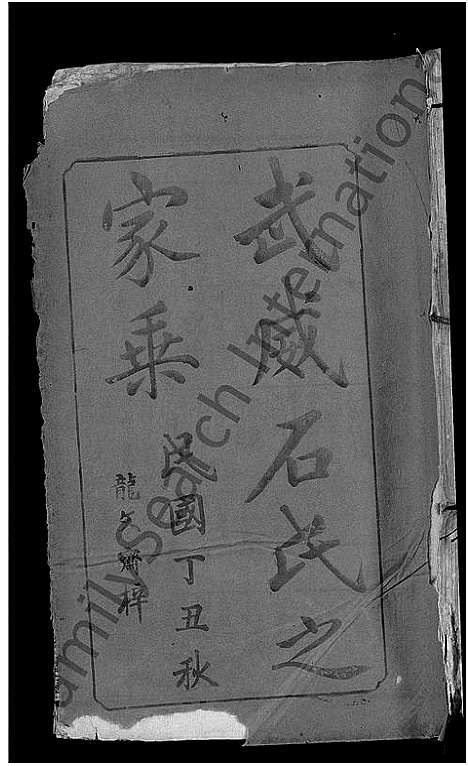 武威石氏之
家乘
民國丁丑秋
龍文齋梓
Family Search International